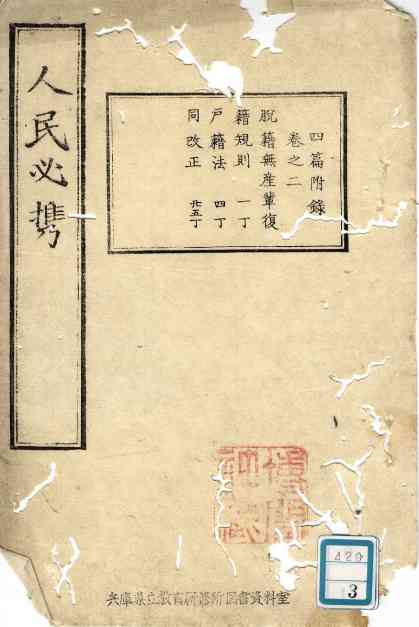 四篇附錄
卷之二
脱籍無産輩復
籍規則 一丁
戸籍法 四丁
同改正 廿五丁
人民必携
兵庫県立教育研修所図書資料室
420
3